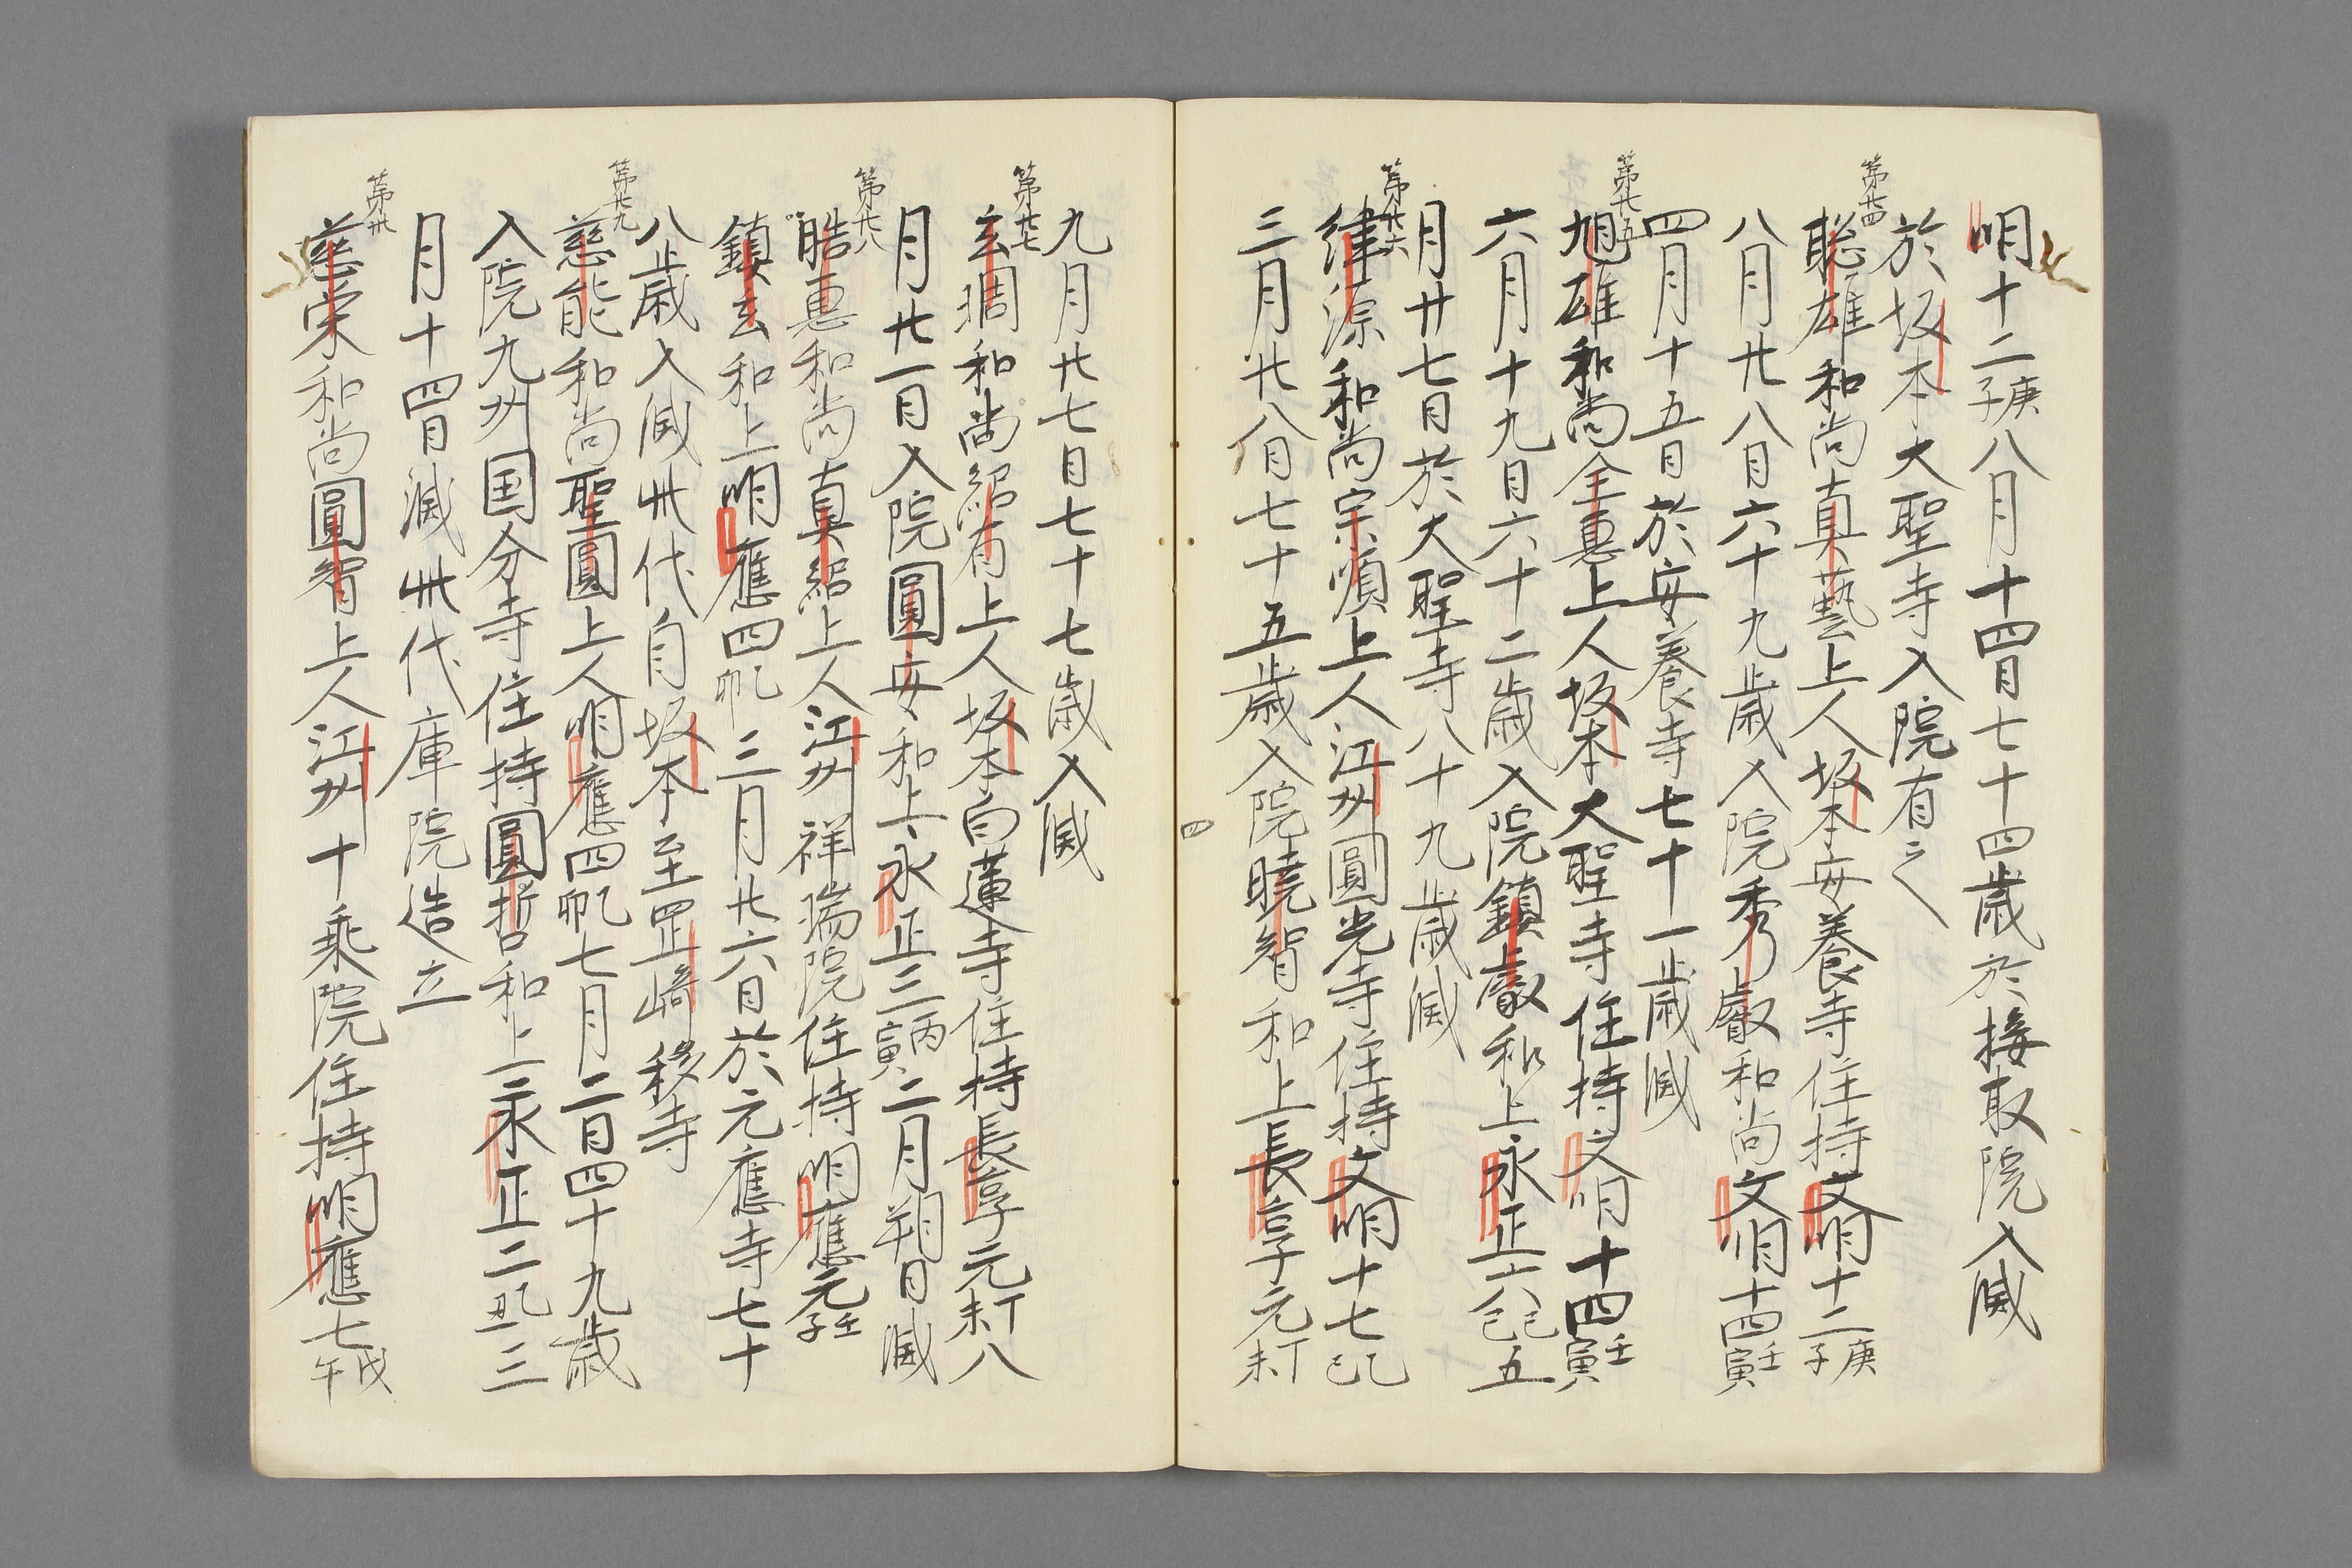 明十二庚子八月十四日七十四歳於接取院入滅
於坂本大聖寺入院有之
第廿四
聡雄和尚真藝上人坂本安養寺住持文明十二庚子
八月廿八日六十九歳入院秀叡和尚文明十四壬寅
四月十五日於安養寺七十一歳滅
第廿五
旭雄和尚全惠上人坂本大聖寺住持文明十四壬寅
六月十九日六十二歳入院鎮叡和上永正六己巳五
月廿七日於大聖寺八十九歳滅
第廿六
律淙和尚宗順上人江州圓光寺住持文明十七乙巳
三月廿八日七十五歳入院曉智和上長享元丁未
四
九月廿七日七十七歳入滅
第廿七
玄琱和尚紹有上人坂本白蓮寺住持長享元丁未八
月廿一日入院圓安和上永正三丙寅二月朔日滅
第廿八
晧惠和尚真紹上人江州祥瑞院住持明應元壬子
鎮玄和上明應四乙卯三月廿六日於元應寺七十
八歳入滅此代自坂本至罡﨑移寺
第廿九
慈能和尚聖圓上人明應四乙卯七月二日四十九歳
入院九州国分寺住持圓哲和上永正二乙丑三
月十四日滅此代庫院造立
第卅
慈栄和尚圓智上人江州十乘院住持明應七戊午